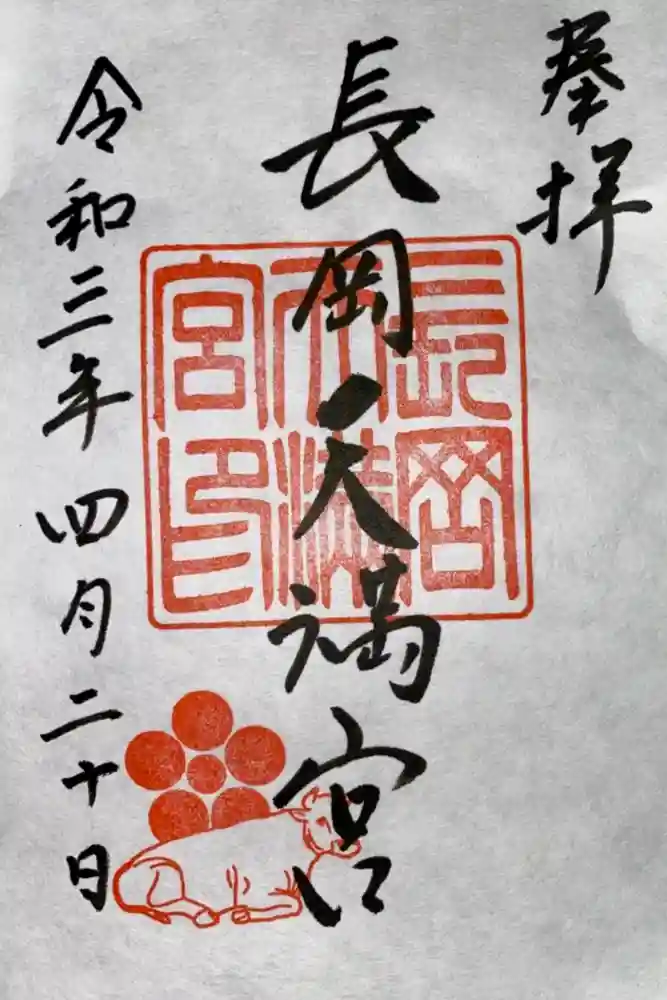 奉拝
長岡天満宮
長岡天満宮印
令和三年四月二十日